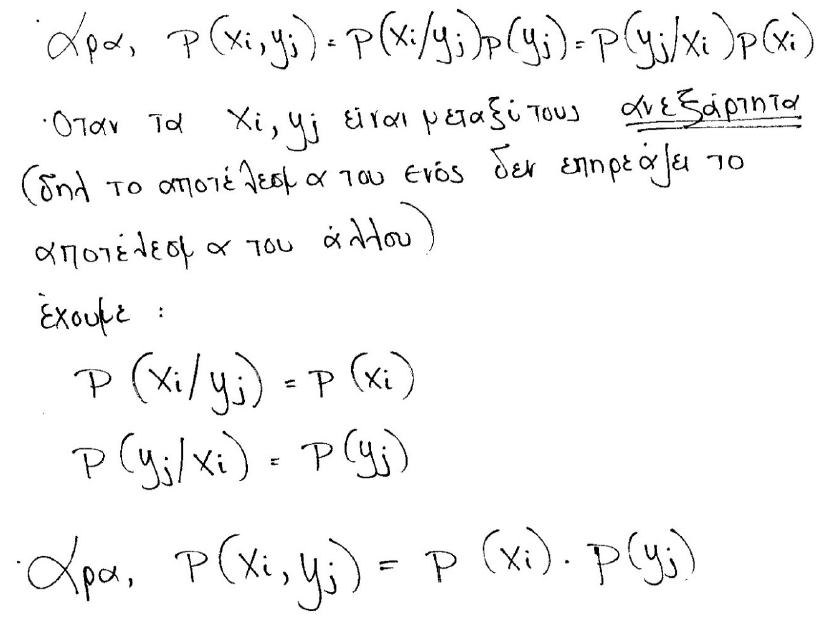 Άρα, P(xi,yj) = P(xi/yj)p(yj) = P(yj/xi)p(xi)
Όταν τα xi, yj είναι μεταξύ τους ανεξάρτητα
(δηλ το αποτέλεσμα του ενός δεν επηρεάζει το
αποτέλεσμα του άλλου)
έχουμε :
P(xi/yj) = P(xi)
P(yj/xi) = P(yj)
Άρα, P(xi,yj) = P(xi) · P(yj)